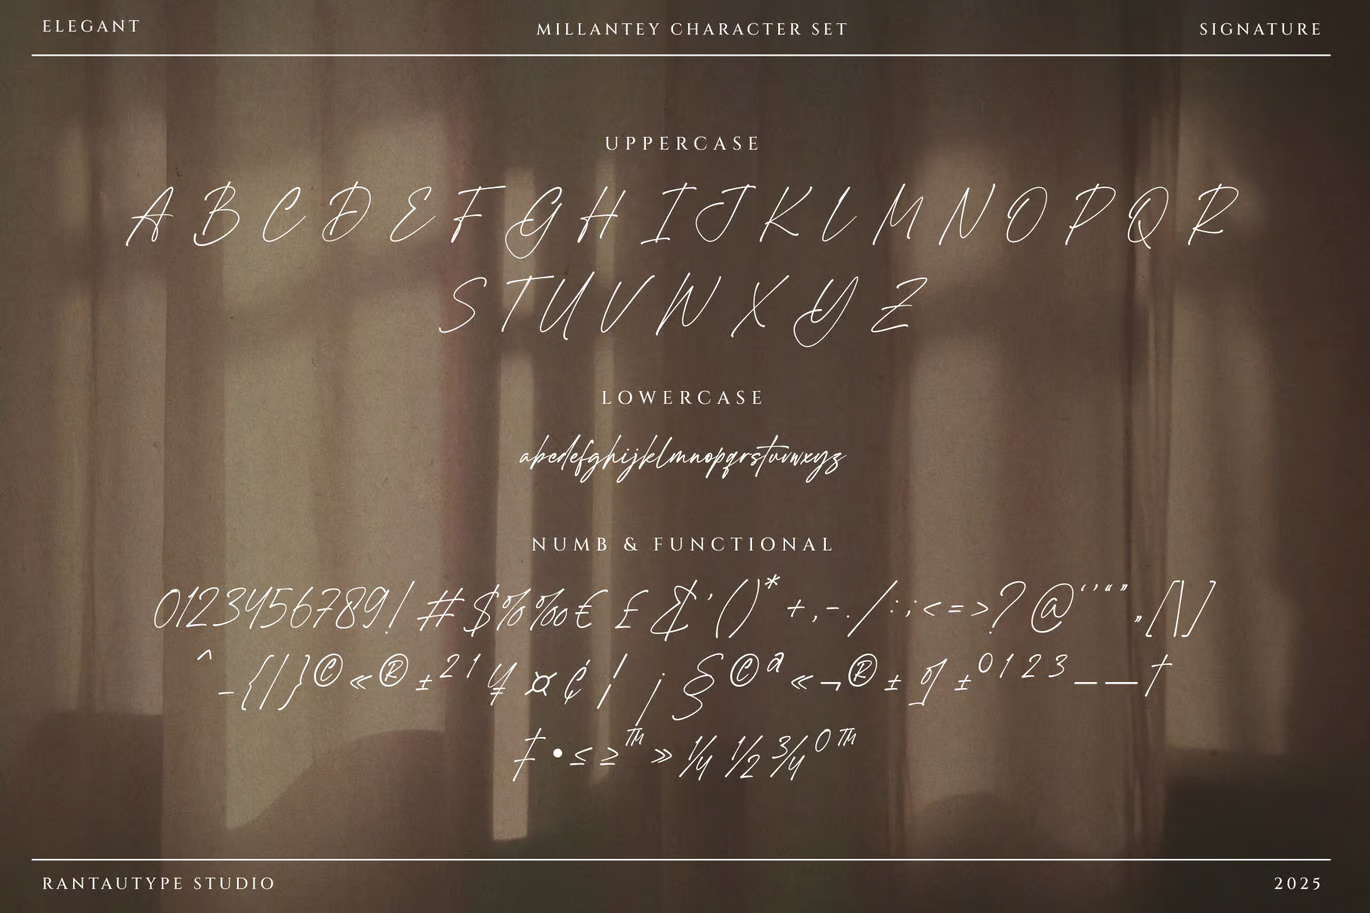 ELEGANT
MILLANTEY CHARACTER SET
SIGNATURE
UPPERCASE
A B C D E F G H I J K L M N O P Q R
S T U V W X Y Z
LOWERCASE
abcdefghijklmnopqrstuvwxyz
NUMB & FUNCTIONAL
0123456789! #$%‰€ £ &'()* +,-./:;<=>? @‘’“”„[\]
^_{|}©«®±²¹¥¤¢¦¡§©ª«¬®±º±⁰¹²³–—†
‡•≤≥™»¼½¾⁰™
RANTAUTYPE STUDIO
2025